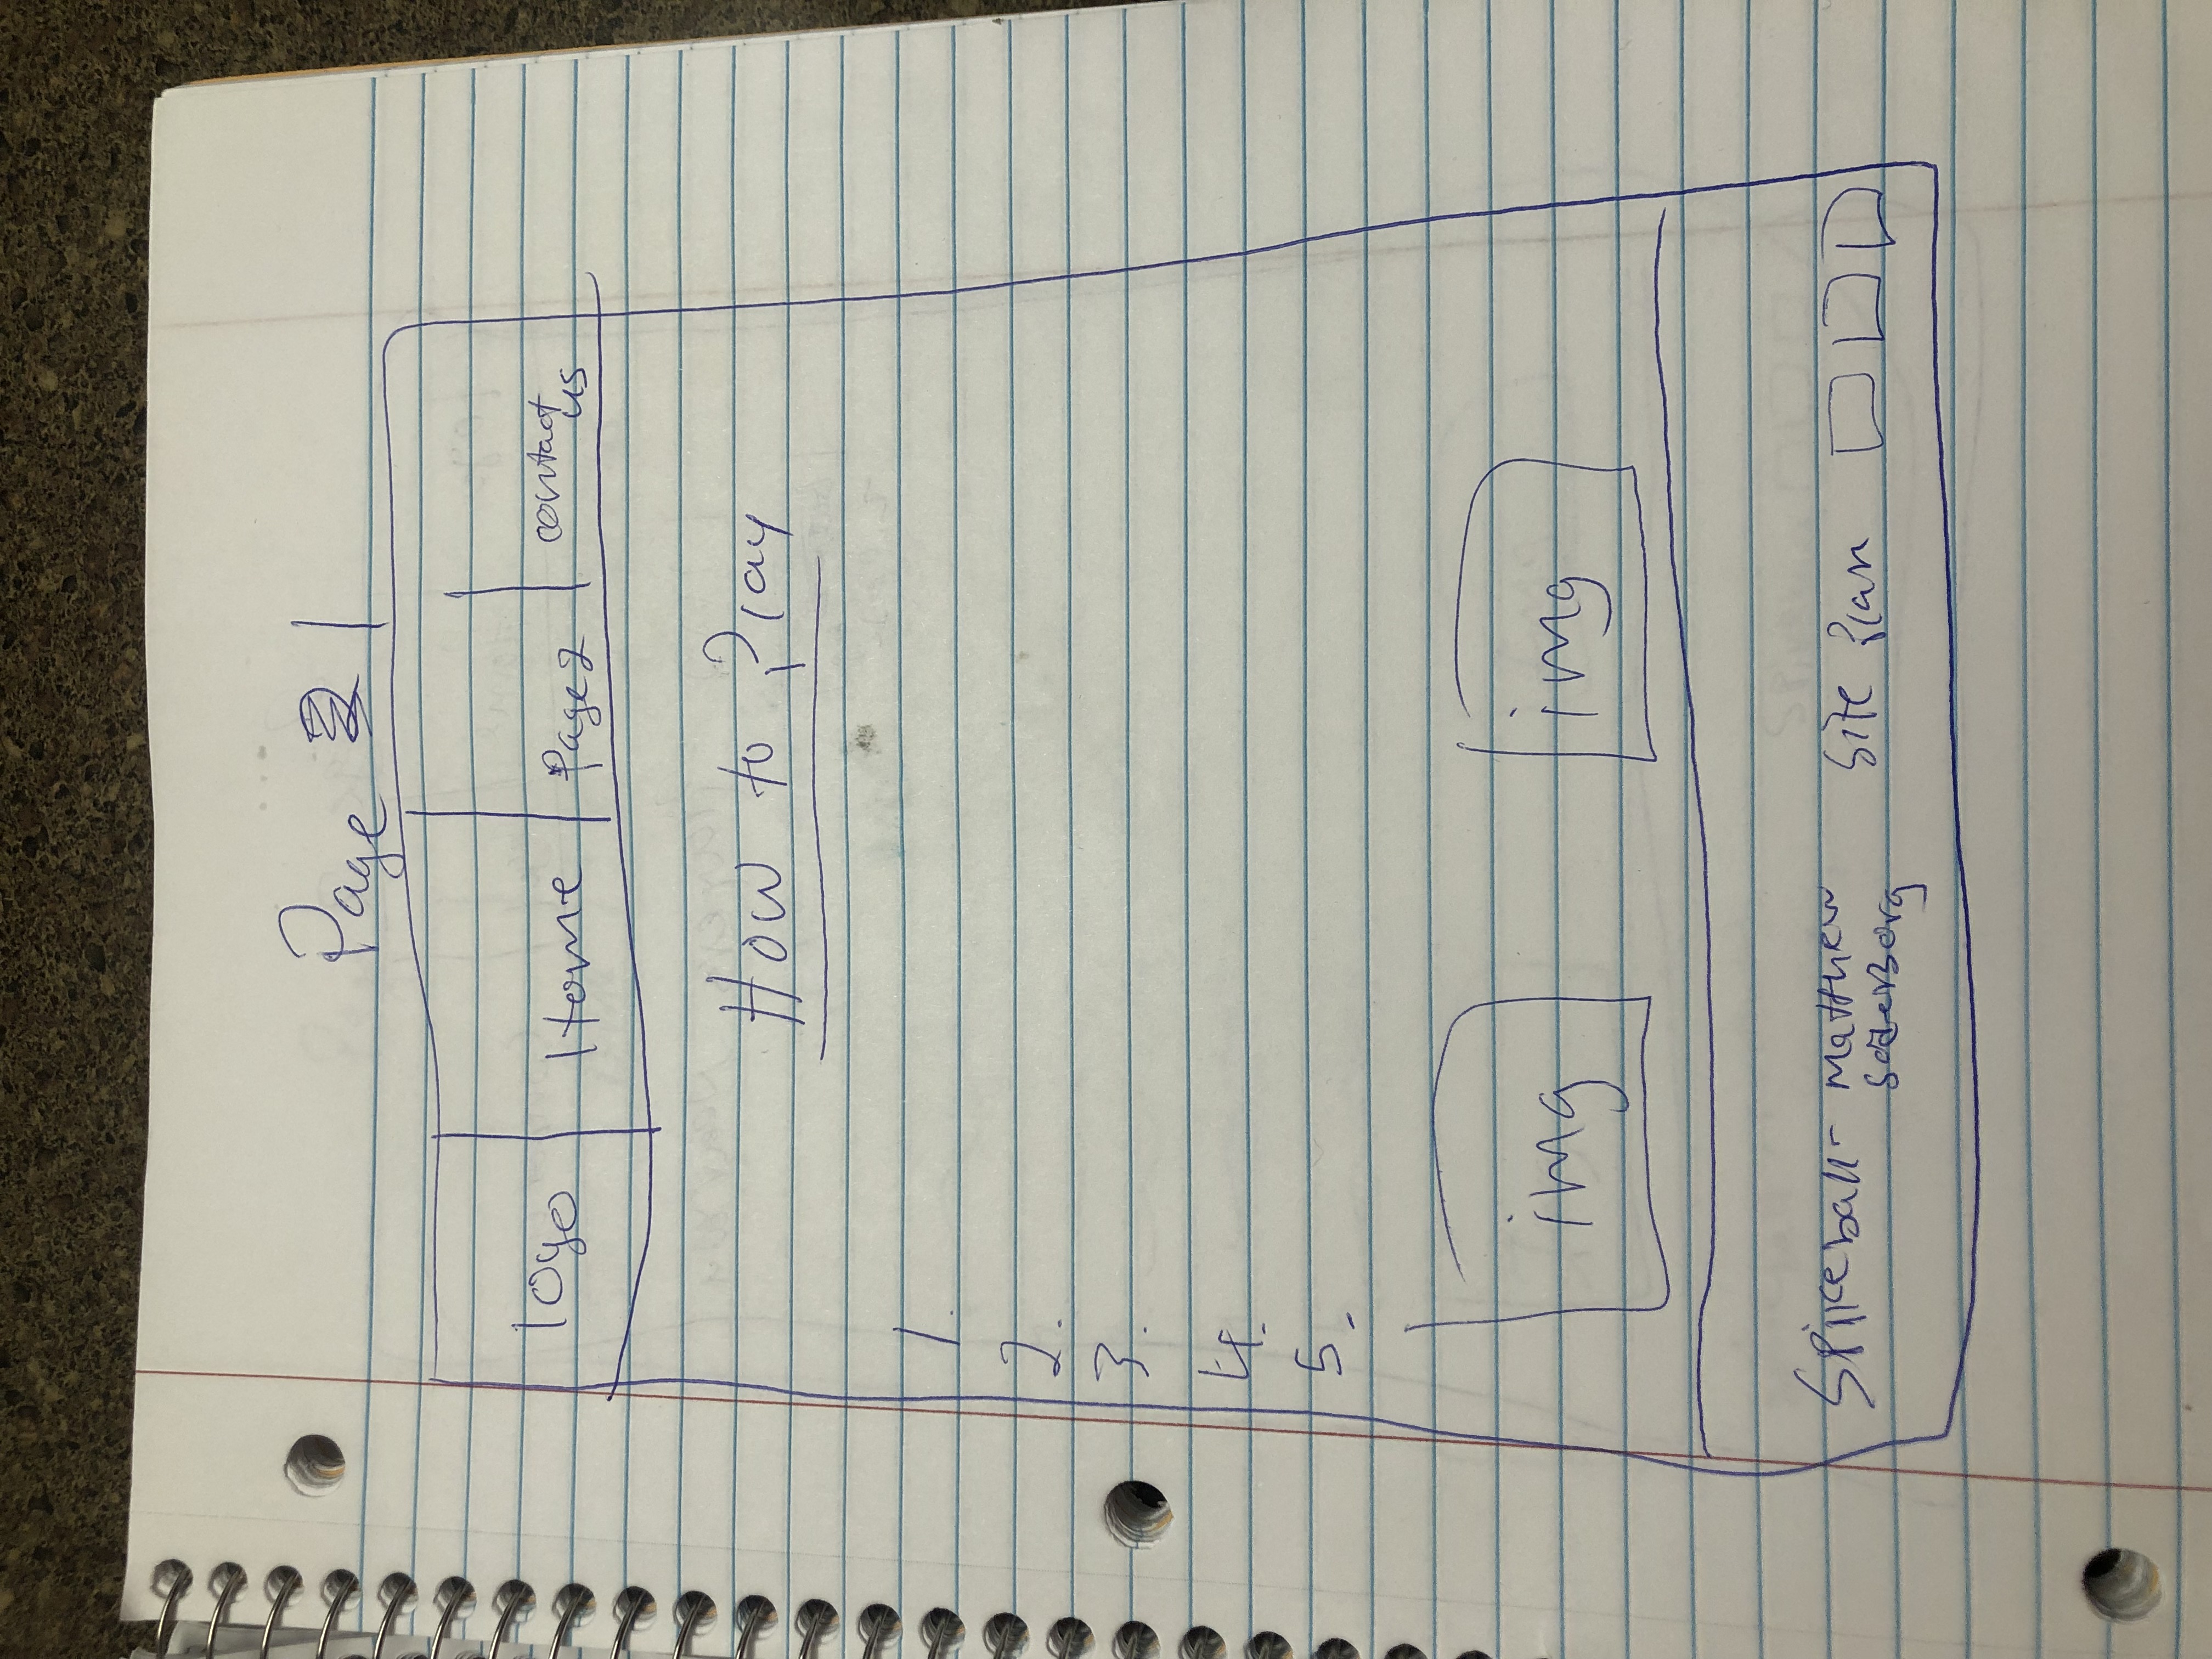 Page 1
logo Home Page2 contact us
How to Play
1.
2.
3.
4.
5.
img img
Spikeball - Matthew Site Plan
SoderBorg